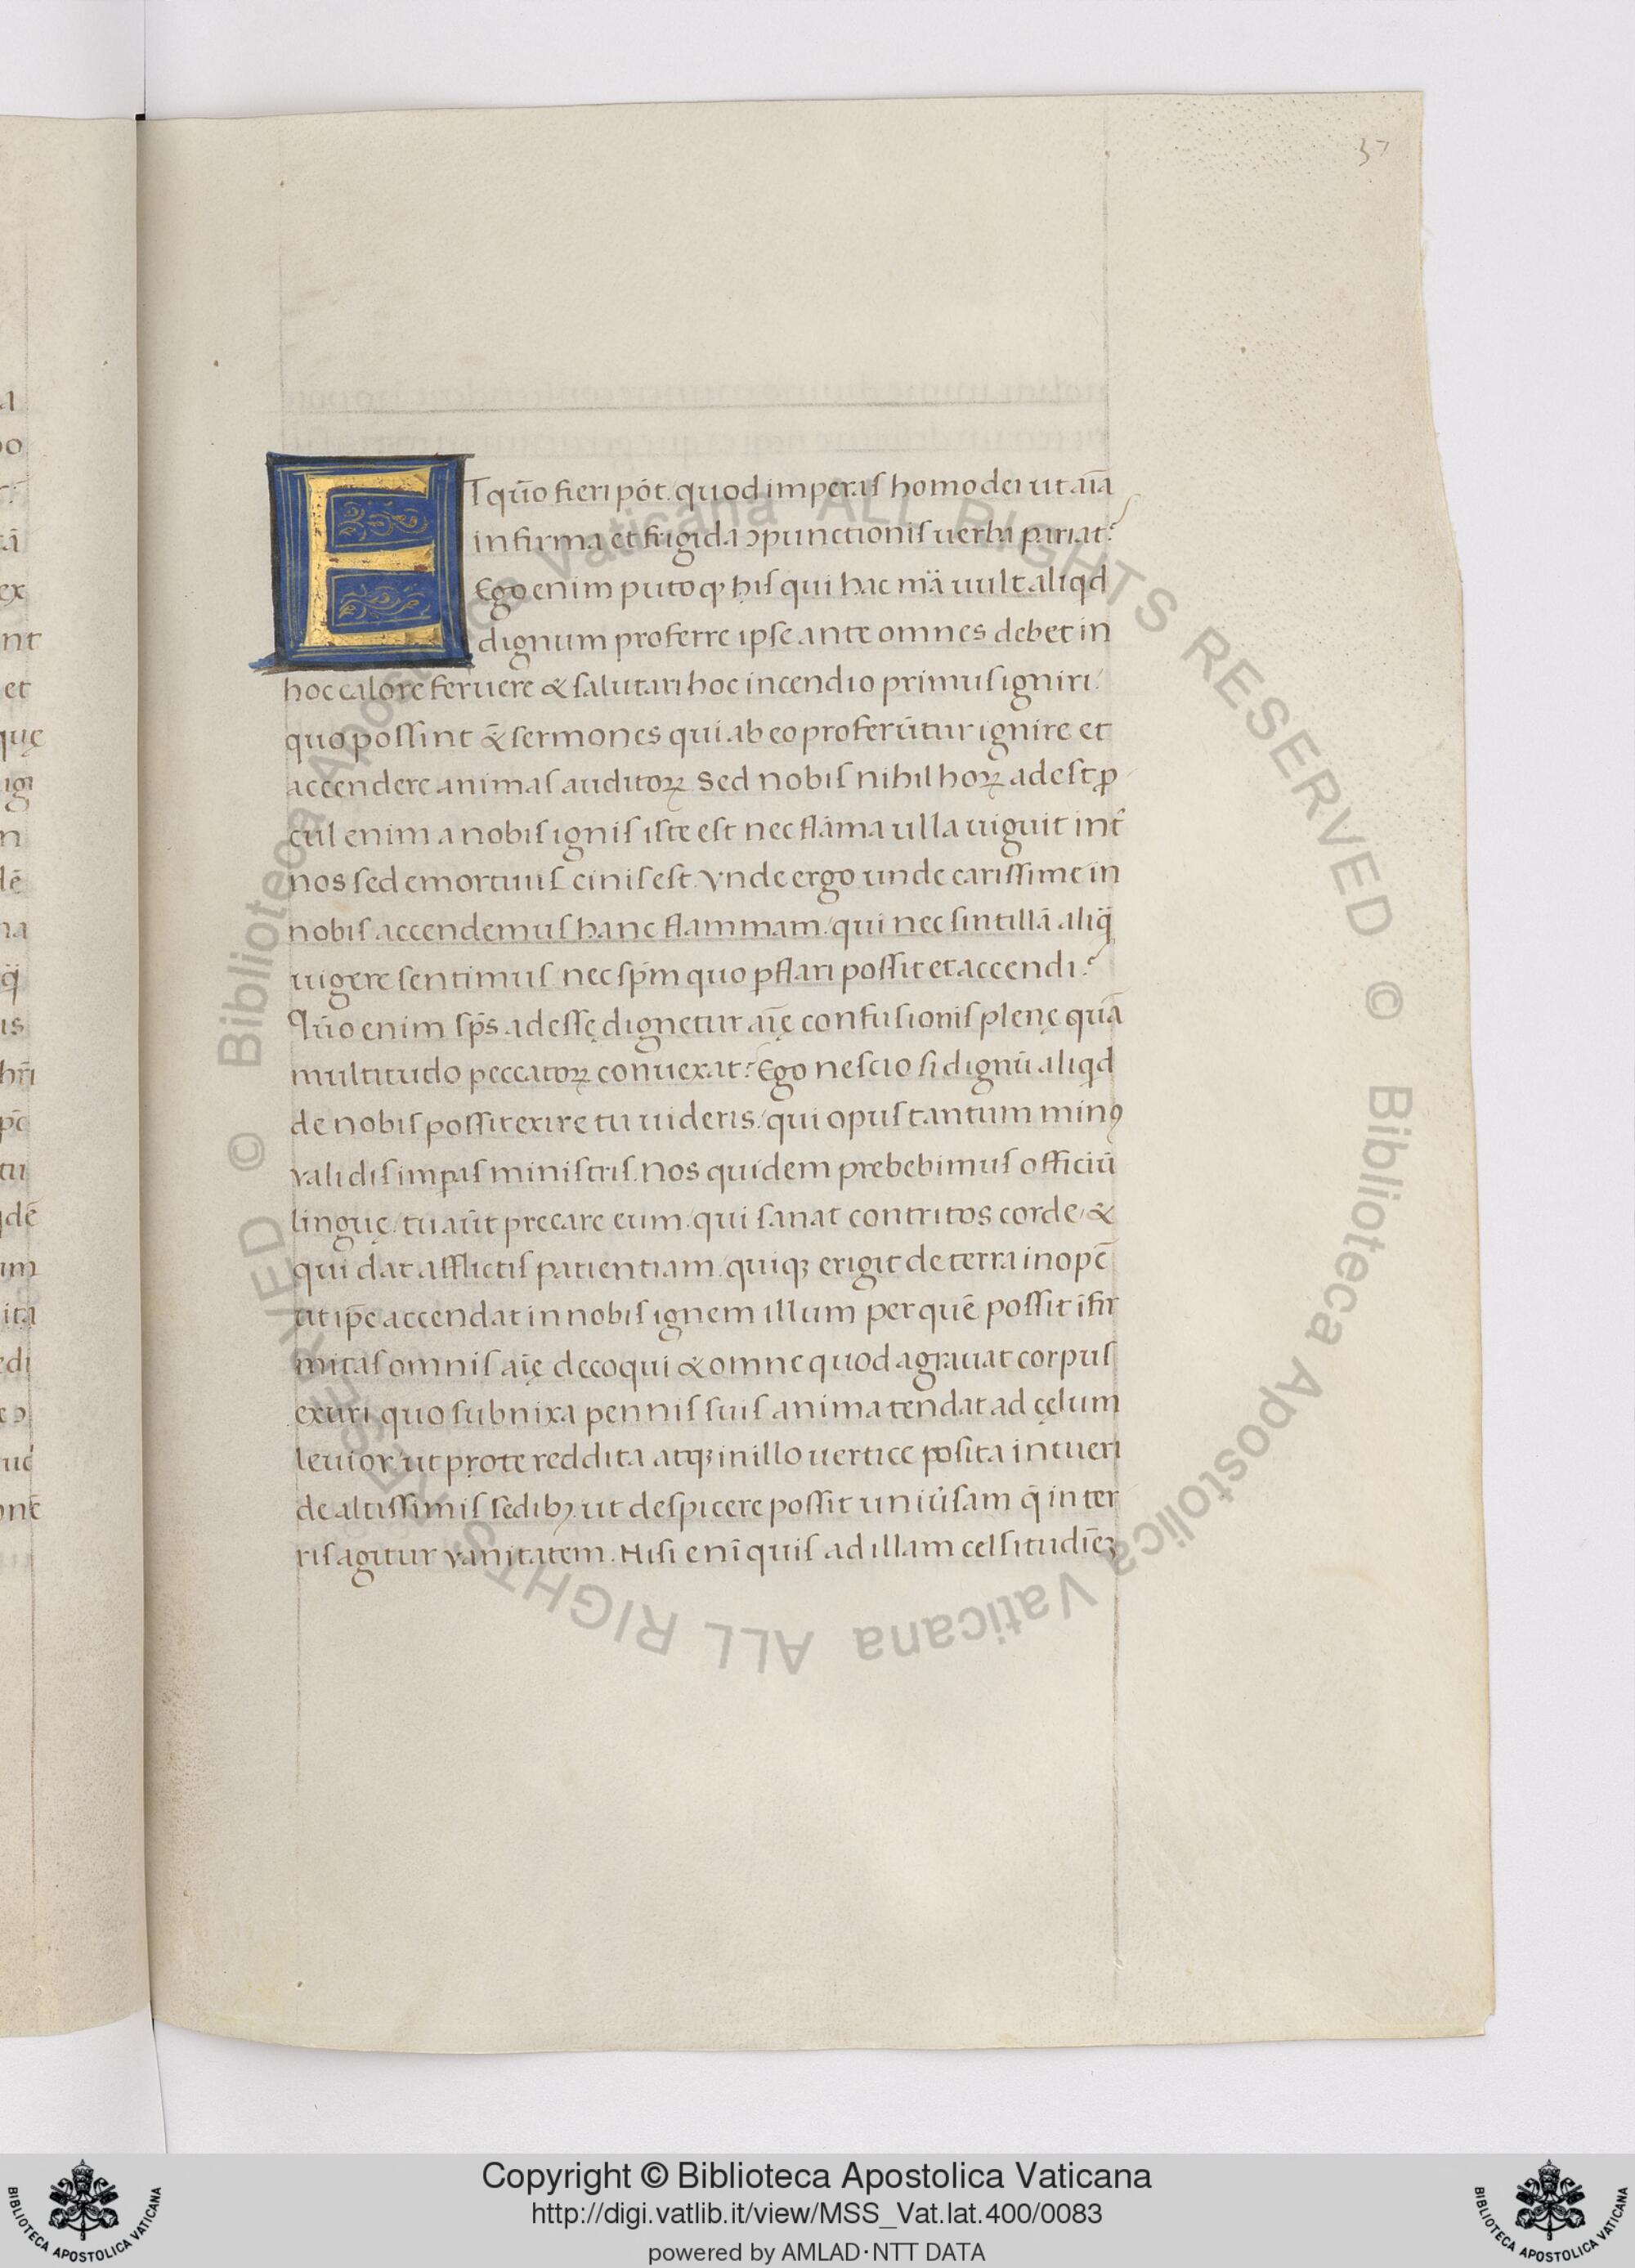 37
ET qūo fieri pót. quod imperas homo dei ut aīa
infirma et frigida ɔpunctionis uerba pariat?
Ego enim puto ꝙ his qui hac mä uult aliqd
dignum proferre ipse ante omnes debet in
hoc calore feruere & salutari hoc incendio primus igniri/
quo possint & sermones qui ab eo proferūtur ignire et
accendere animas auditoꝝ. Sed nobis nihil hoꝝ adest ꝓ
cul enim a nobis ignis iste est nec flāma ulla uiguit int̄
nos sed emortuus cinis est. Vnde ergo unde carissime in
nobis accendemus hanc flammam/ qui nec sintillā aliq̈
uigere sentimus nec sp̄m quo ꝑflari possit et accendi?
Qūo enim sp̄s adessę dignetur aīę confusionis plenę quā
multitudo peccatoꝝ conuexat? Ego nescio si dignū aliqd
de nobis possit exire tu uideris/ qui opus tantum minꝰ
validis imꝑas ministris. Nos quidem prebebimus officiū
linguę/ tu aūt precare eum/ qui sanat contritos corde/ &
qui dat afflictis patientiam. quiqꝫ erigit de terra inopē
ut ip̄e accendat in nobis ignem illum per quē possit īfir
mitas omnis aīę decoqui & omne quod agrauat corpus
exuri quo subnixa pennis suis anima tendat ad cęlum
leuior. ut prote reddita atqꝫ in illo uertice posita intueri
de altissimis sedibꝫ. ut despicere possit uniūsam q̄ in ter
ris agitur vanitatem. Nisi enī quis ad illam celsitudīeꝫ
© Biblioteca Apostolica Vaticana ALL RIGHTS RESERVED © Biblioteca Apostolica Vaticana ALL RIGHTS RESERVED
Copyright © Biblioteca Apostolica Vaticana
http://digi.vatlib.it/view/MSS_Vat.lat.400/0083
powered by AMLAD·NTT DATA
BIBLIOTECA APOSTOLICA VATICANA
BIBLIOTECA APOSTOLICA VATICANA